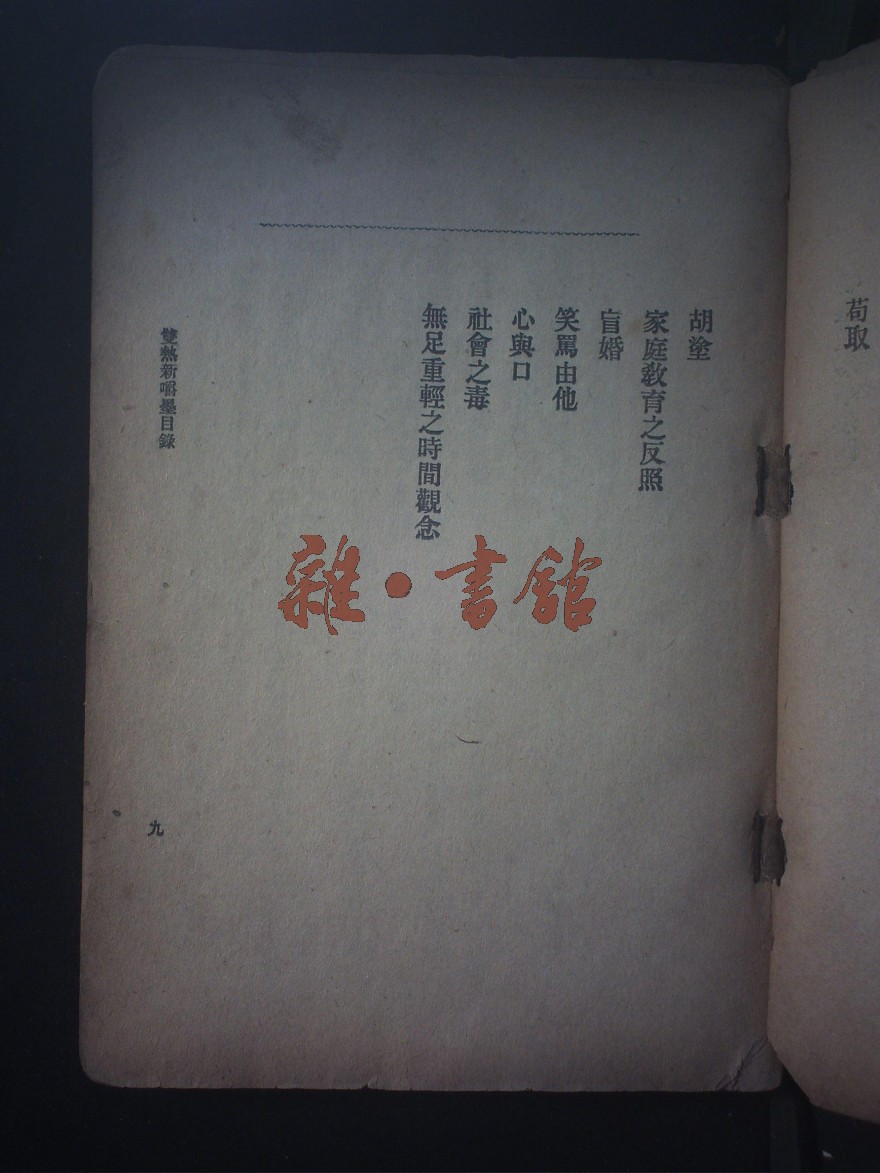 苟取
胡塗
家庭敎育之反照
盲婚
笑罵由他
心與口
社會之毒
無足重輕之時間觀念
雙熱新嚼墨目錄
九
雜·書館